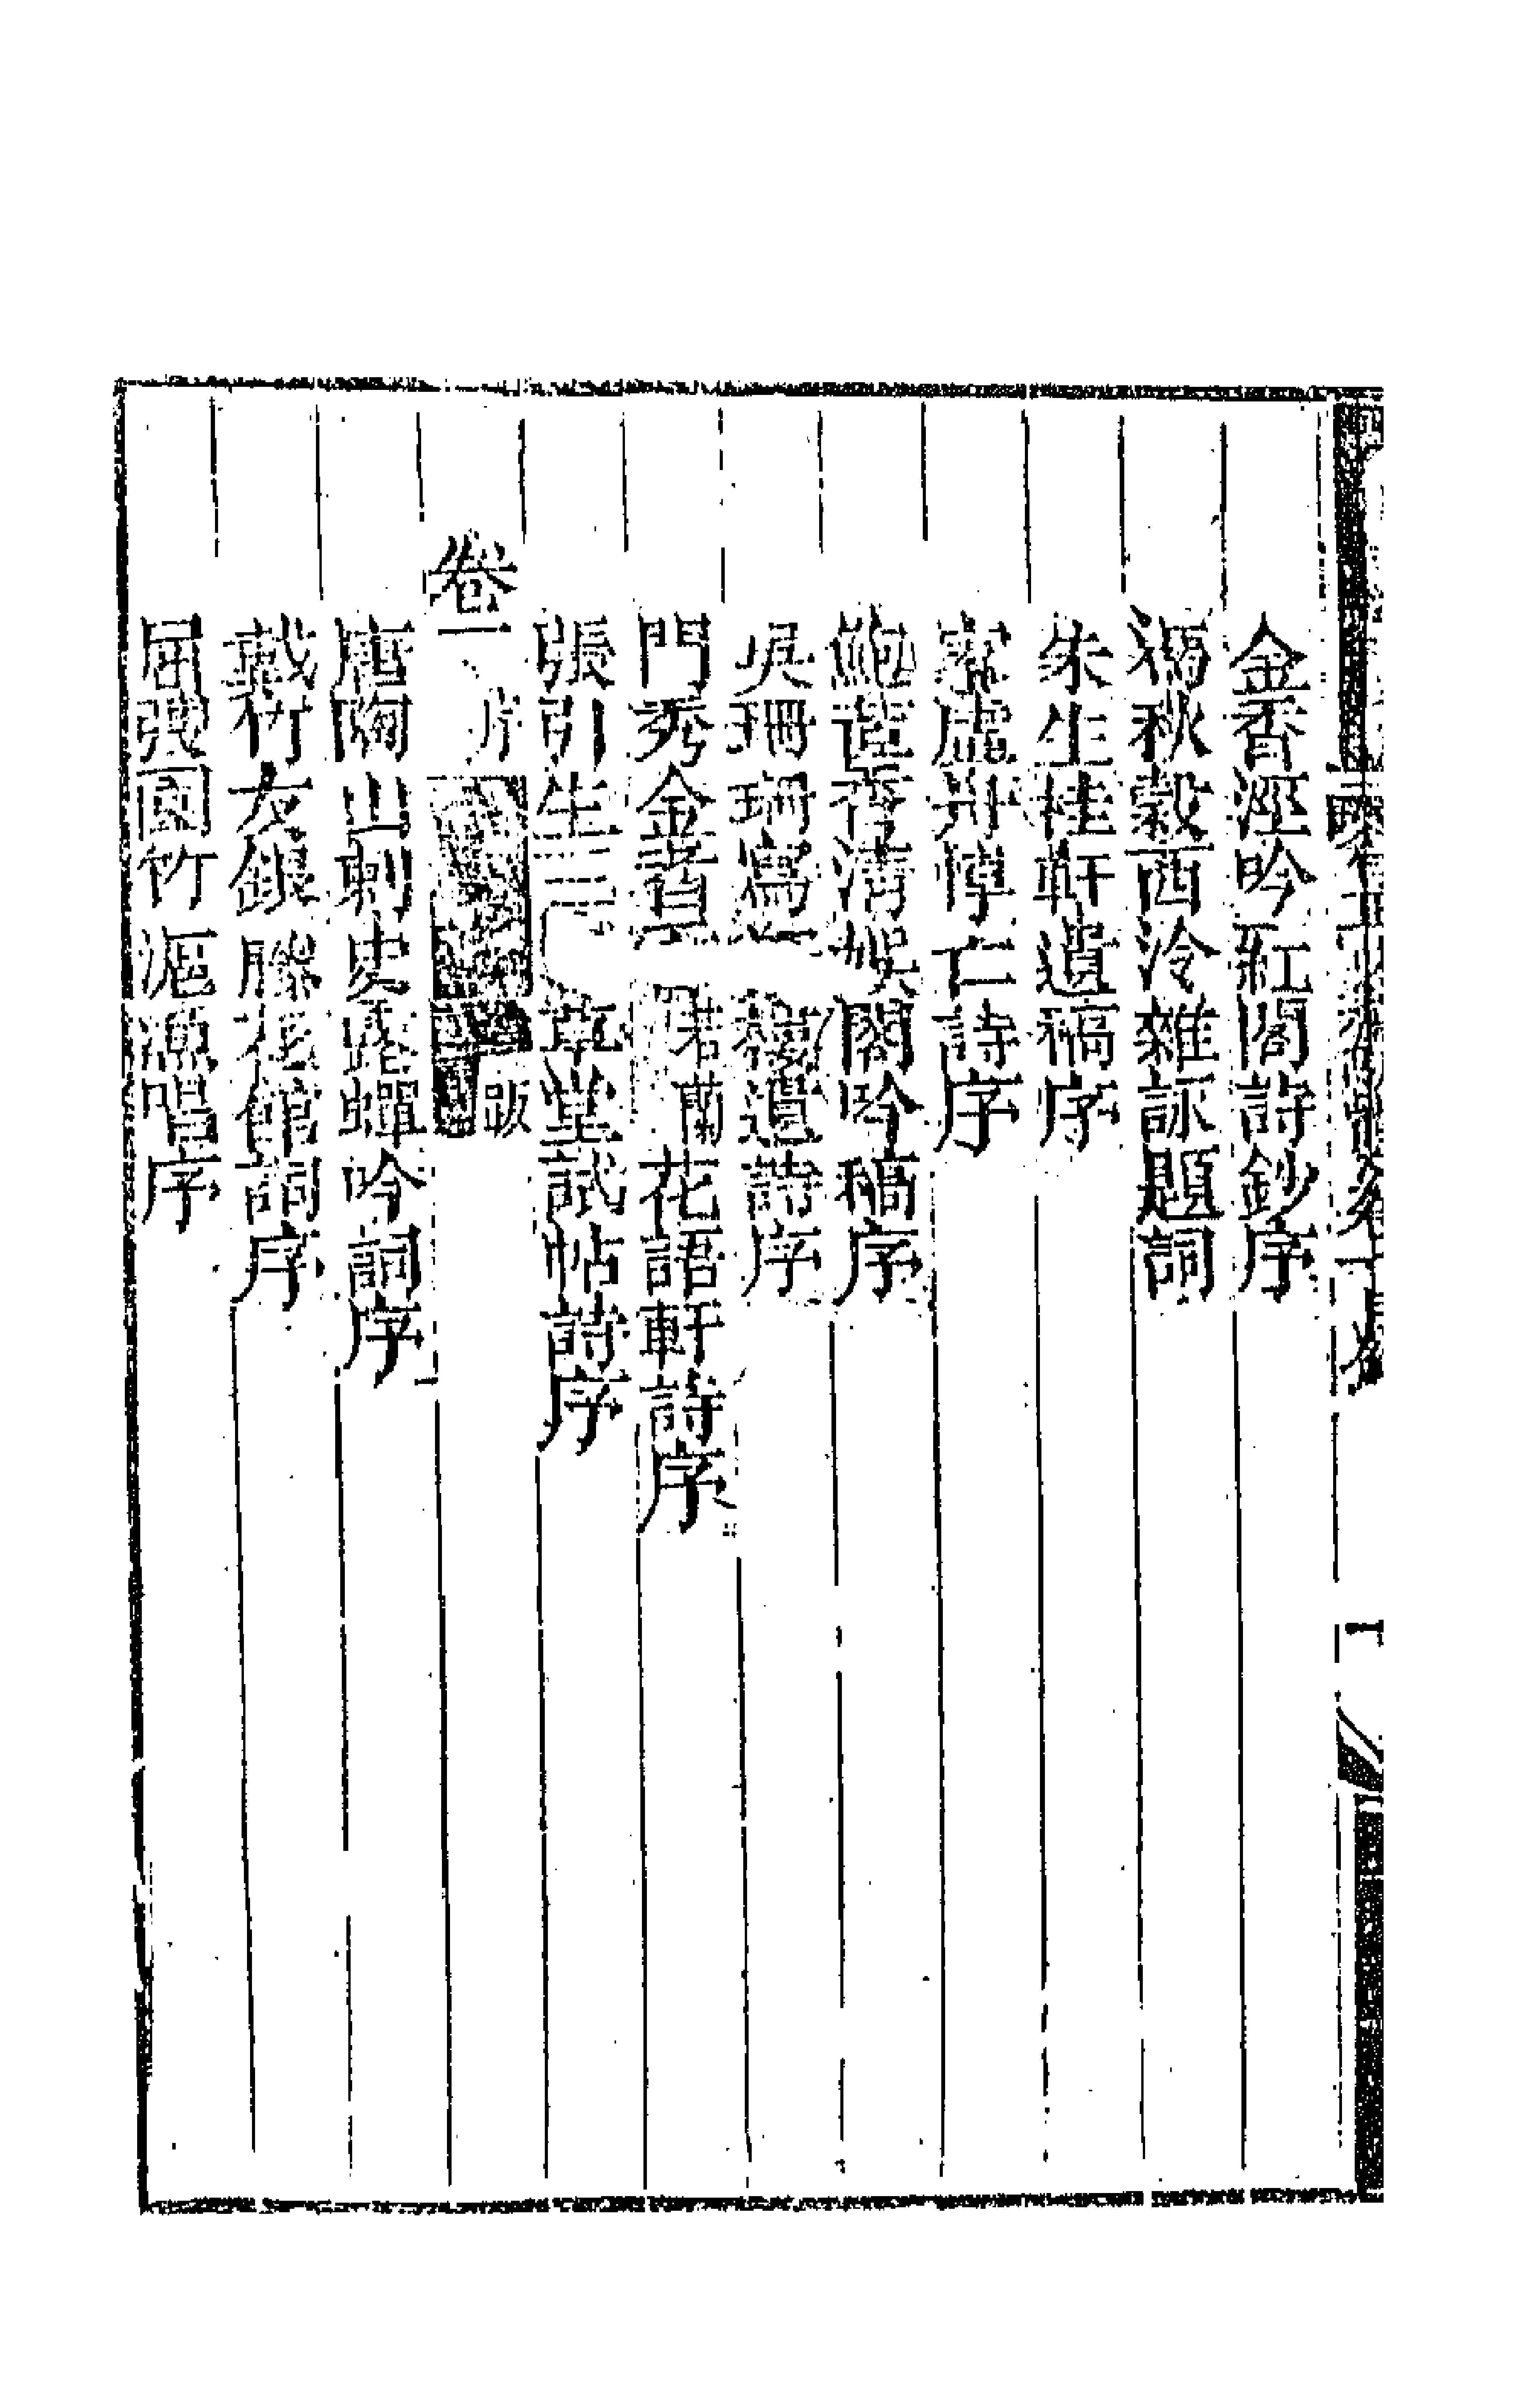 金香涇吟紅閣詩鈔序
馮秋穀西泠雜詠題詞
朱生桂軒遺稿序
家虛舟悼亡詩序
鮑蓮香清娛閣吟稿序
吳珊珊寫韻樓遺詩序
門秀金 若蘭花語軒詩序
張引生三 草堂試帖詩序
卷一 序 跋
唐陶山刺史露蟬吟詞序
戴竹友銀藤花館詞序
屈弢園竹沠漁唱序